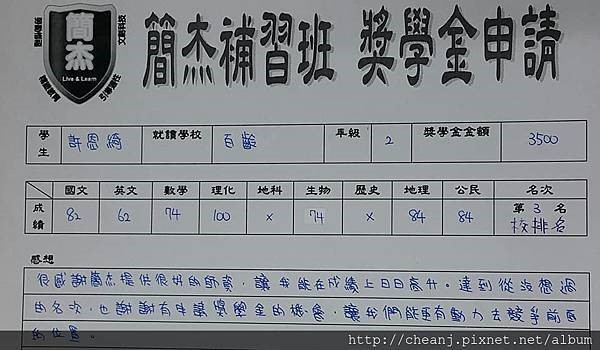 簡杰補習班 獎學金申請
簡杰
Live & Learn
學生 許恩綺 就讀學校 百齡 年級 2 獎學金金額 3500
國文 英文 數學 理化 地科 生物 歷史 地理 公民 名次
成績 82 62 74 100 × 74 × 84 84 第 3 名 校排名
感想
很感謝簡杰提供很好的師資,讓我能在成績上日日高升。達到從沒想過
的名次,也謝謝有申請獎學金的機會,讓我們能更有動力去競爭前面
的位置。
http://cheanj.pixnet.net/album